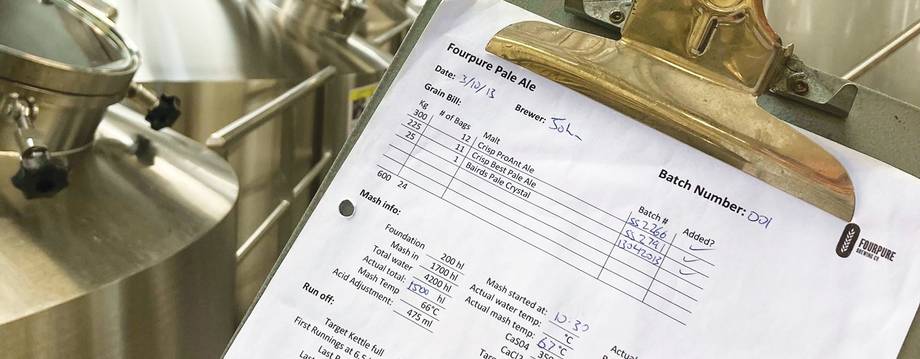 Fourpure Pale Ale
Date: 3/10/13 Brewer: John Batch Number: 001
Grain Bill:
Kg # of Bags Malt Batch # Added?
300 12 Crisp ProAnt Ale SS 2766 ✓
225 11 Crisp Best Pale Ale SS 2791 ✓
25 1 Bairds Pale Crystal 13042013 ✓
600 24
FOURPURE
BREWING CO
Mash info:
Foundation 200 hl Mash started at: 10:30
Mash in 1700 hl Actual water temp: °C
Total water 4200 hl Actual mash temp: 67°C
Actual total: 1500 hl CaS04
Mash Temp 66°C CaCl
Acid Adjustment: 475 ml
Run off:
Target Kettle full
First Runnings at 6.5
Last